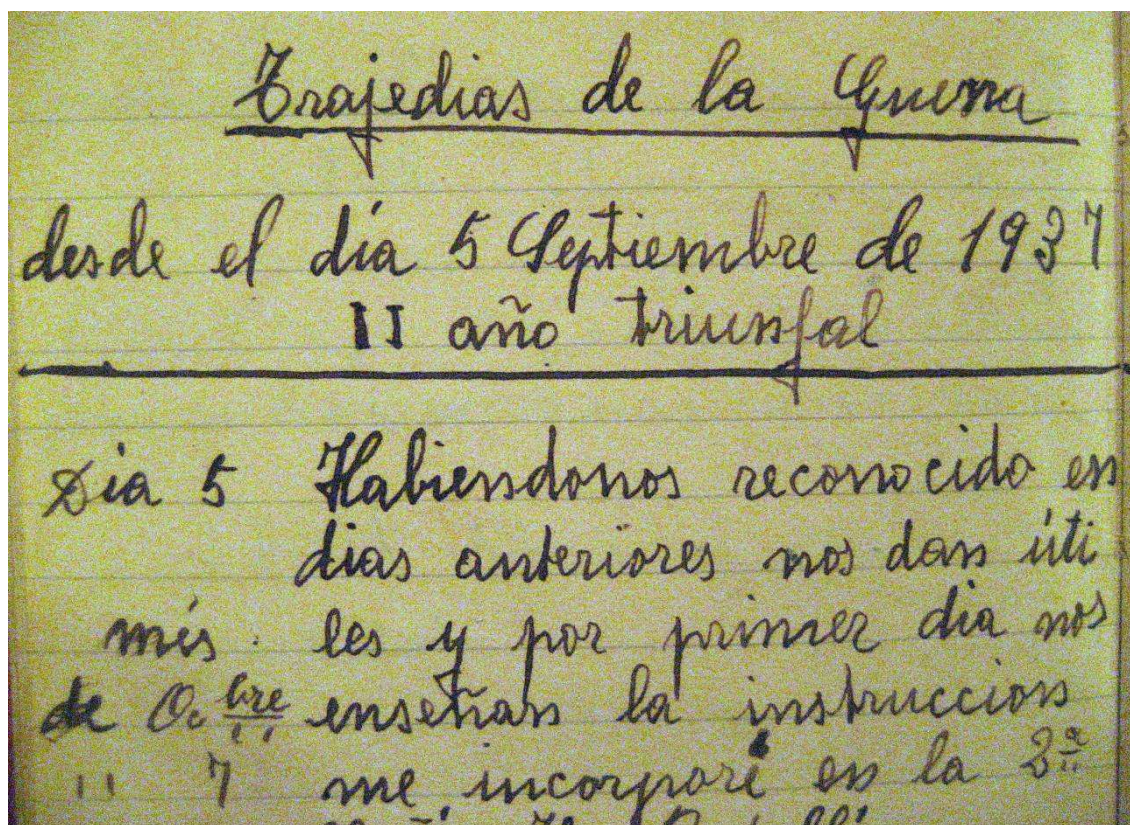 Trajedias de la Guerra
desde el día 5 Septiembre de 1937
II año triunfal
Dia 5 Habiendonos reconocido en
dias anteriores nos dan úti
més. les y por primer dia nos
de Oc bre enseñan la instruccion
" 7 me incorporé en la 3ª